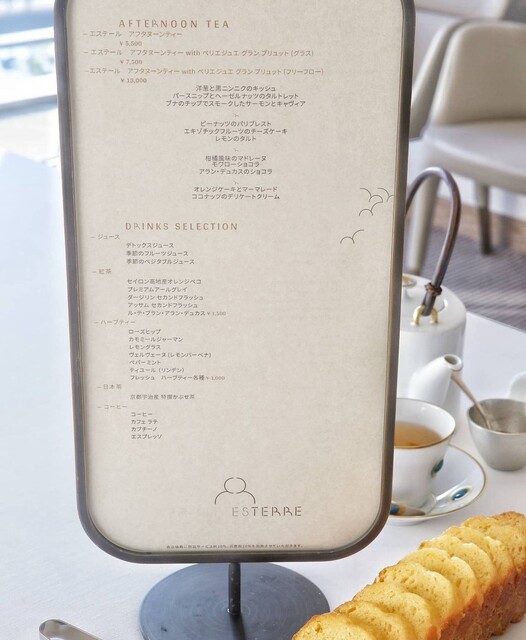 AFTERNOON TEA
– エステール アフタヌーンティー
¥ 5,500
– エステール アフタヌーンティー with ペリエジュエ グラン ブリュット (グラス)
¥ 7,500
– エステール アフタヌーンティー with ペリエジュエ グラン ブリュット (フリーフロー)
¥ 13,000
洋葱と黒ニンニクのキッシュ
パースニップとヘーゼルナッツのタルトレット
ブナのチップでスモークしたサーモンとキャヴィア
ピーナッツのパリブレスト
エキゾチックフルーツのチーズケーキ
レモンのタルト
柑橘風味のマドレーヌ
モワローショコラ
アラン・デュカスのショコラ
オレンジケーキとマーマレード
ココナッツのデリケートクリーム
DRINKS SELECTION
– ジュース
デトックスジュース
季節のフルーツジュース
季節のベジタブルジュース
– 紅茶
セイロン高地産オレンジペコ
プレミアムアールグレイ
ダージリン セカンドフラッシュ
アッサム セカンドフラッシュ
ル・テ・ブラン・アラン・デュカス ¥ 1,500
– ハーブティー
ローズヒップ
カモミールジャーマン
レモングラス
ヴェルヴェーヌ (レモンバーベナ)
ペパーミント
ティユール (リンデン)
フレッシュ ハーブティー各種 ¥ 1,000
– 日本茶
京都宇治産 特撰かぶせ茶
– コーヒー
コーヒー
カフェ ラテ
カプチーノ
エスプレッソ
ESTERRE